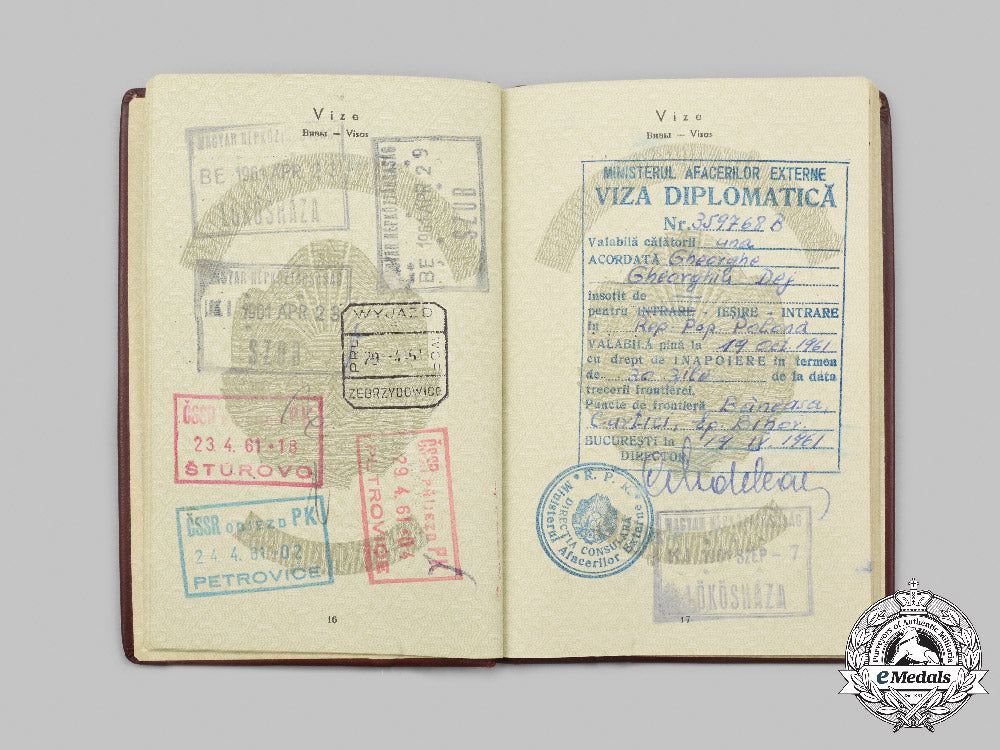 Vize
Визы — Visas
MAGYAR NÉPKÖZ
BE 1961 APR 2
LŐKÖSHÁZA
MAGYAR NÉPKÖZTÁRSASÁG
BE 1961 APR 29
SZOB
MAGYAR NÉPKÖZTÁRSASÁG
KI 1961 APR 23
SZOB
WYJAZD
29 -4.61
ZEBRZYDOWICE
ČSSR
23.4.61·18
ŠTÚROVO
ČSSR odjezd PK
24.4.61·02
PETROVICE
ČSSR příjezd PK
29.4.61·04
PETROVICE
16
Vize
Визы — Visas
MINISTERUL AFACERILOR EXTERNE
VIZA DIPLOMATICĂ
Nr. 359768 B
Valabilă călătorii una
ACORDATĂ Gheorghe
Gheorghiu Dej
însoțit de
pentru INTRARE - IEȘIRE - INTRARE
în Rep. Pop. Polonă
VALABILĂ pînă la 19 oct 1961
cu drept de INAPOIERE în termen
de 30 zile de la data
trecerii frontierei.
Puncte de frontieră Băneasa,
Curtici, Ep. Bihor.
BUCUREȘTI la 19 IX. 1961
DIRECTOR,
R. P. R.
Ministerul Afacerilor Externe
DIRECȚIA CONSULARĂ
MAGYAR NÉPKÖZTÁRSASÁG
KI 1961 SZEP - 7
LŐKÖSHÁZA
17
Purveyors of Authentic Militaria
eMedals